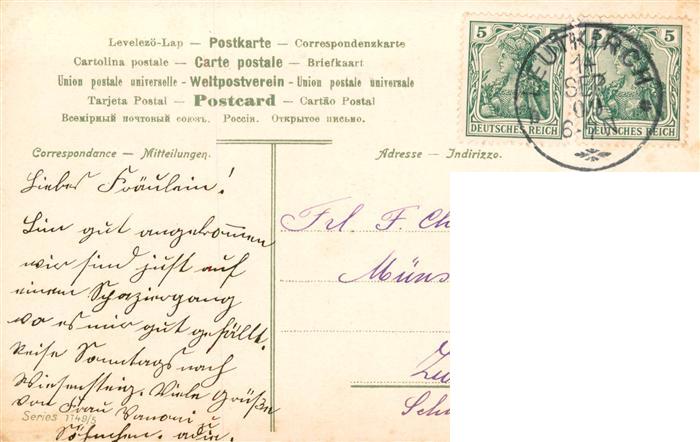 Levelezö-Lap — Postkarte — Correspondenzkarte
Cartolina postale — Carte postale — Briefkaart
Union postale universelle - Weltpostverein - Union postale universale
Tarjeta Postal — Postcard — Cartão Postal
Всемірный почтовый союзъ. Россія. Открытое письмо.
5 5
DEUTSCHES REICH DEUTSCHES REICH
LEUTKIRCH
14
SEP
Correspondance — Mitteilungen.
Adresse — Indirizzo.
Liebes Fräulein!
Bin gut angekommen
wir sind just auf
einem Spaziergang
wo es mir gut gefällt.
Reise Sonntags nach
Wiesensteig. Viele Grüße
von Frau Vanoni u
Söhnchen. adie.
Frl. F. Ch
Müns
Zu
Sch
Series 1748/5